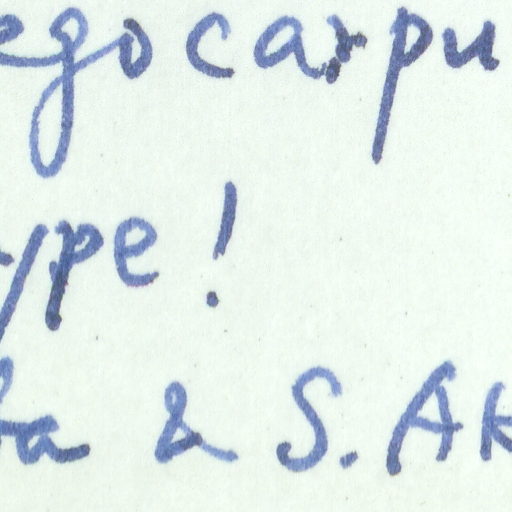 egocarpu
ype!
ta & S. Ak